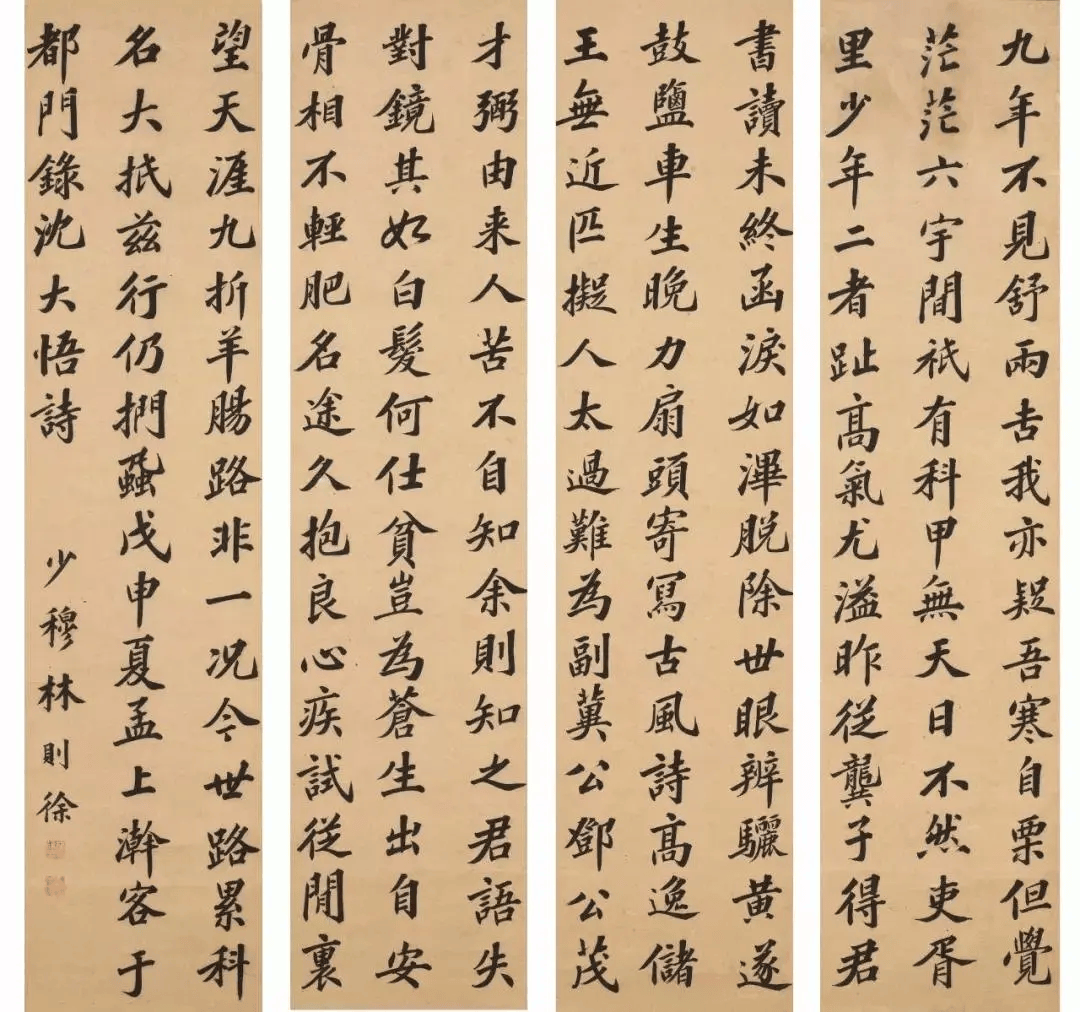 九年不見舒雨吉我亦疑吾寒自栗但覺
茫茫六宇間祇有科甲無天日不然吏胥
里少年二者趾高氣尤溢昨從龔子得君
書讀未終函淚如潷脫除世眼辨驪黃遂
鼓鹽車生晚力扇頭寄寫古風詩高逸儲
王無近匹擬人太過難為副冀公鄧公茂
才弼由来人苦不自知余則知之君語失
對鏡其如白髮何仕貧豈為蒼生出自安
骨相不輕肥名途久抱良心疾試從閒裏
望天涯九折羊腸路非一况今世路累科
名大抵兹行仍捫蝨戊申夏孟上澣客于
都門錄沈大悟詩 少穆林則徐